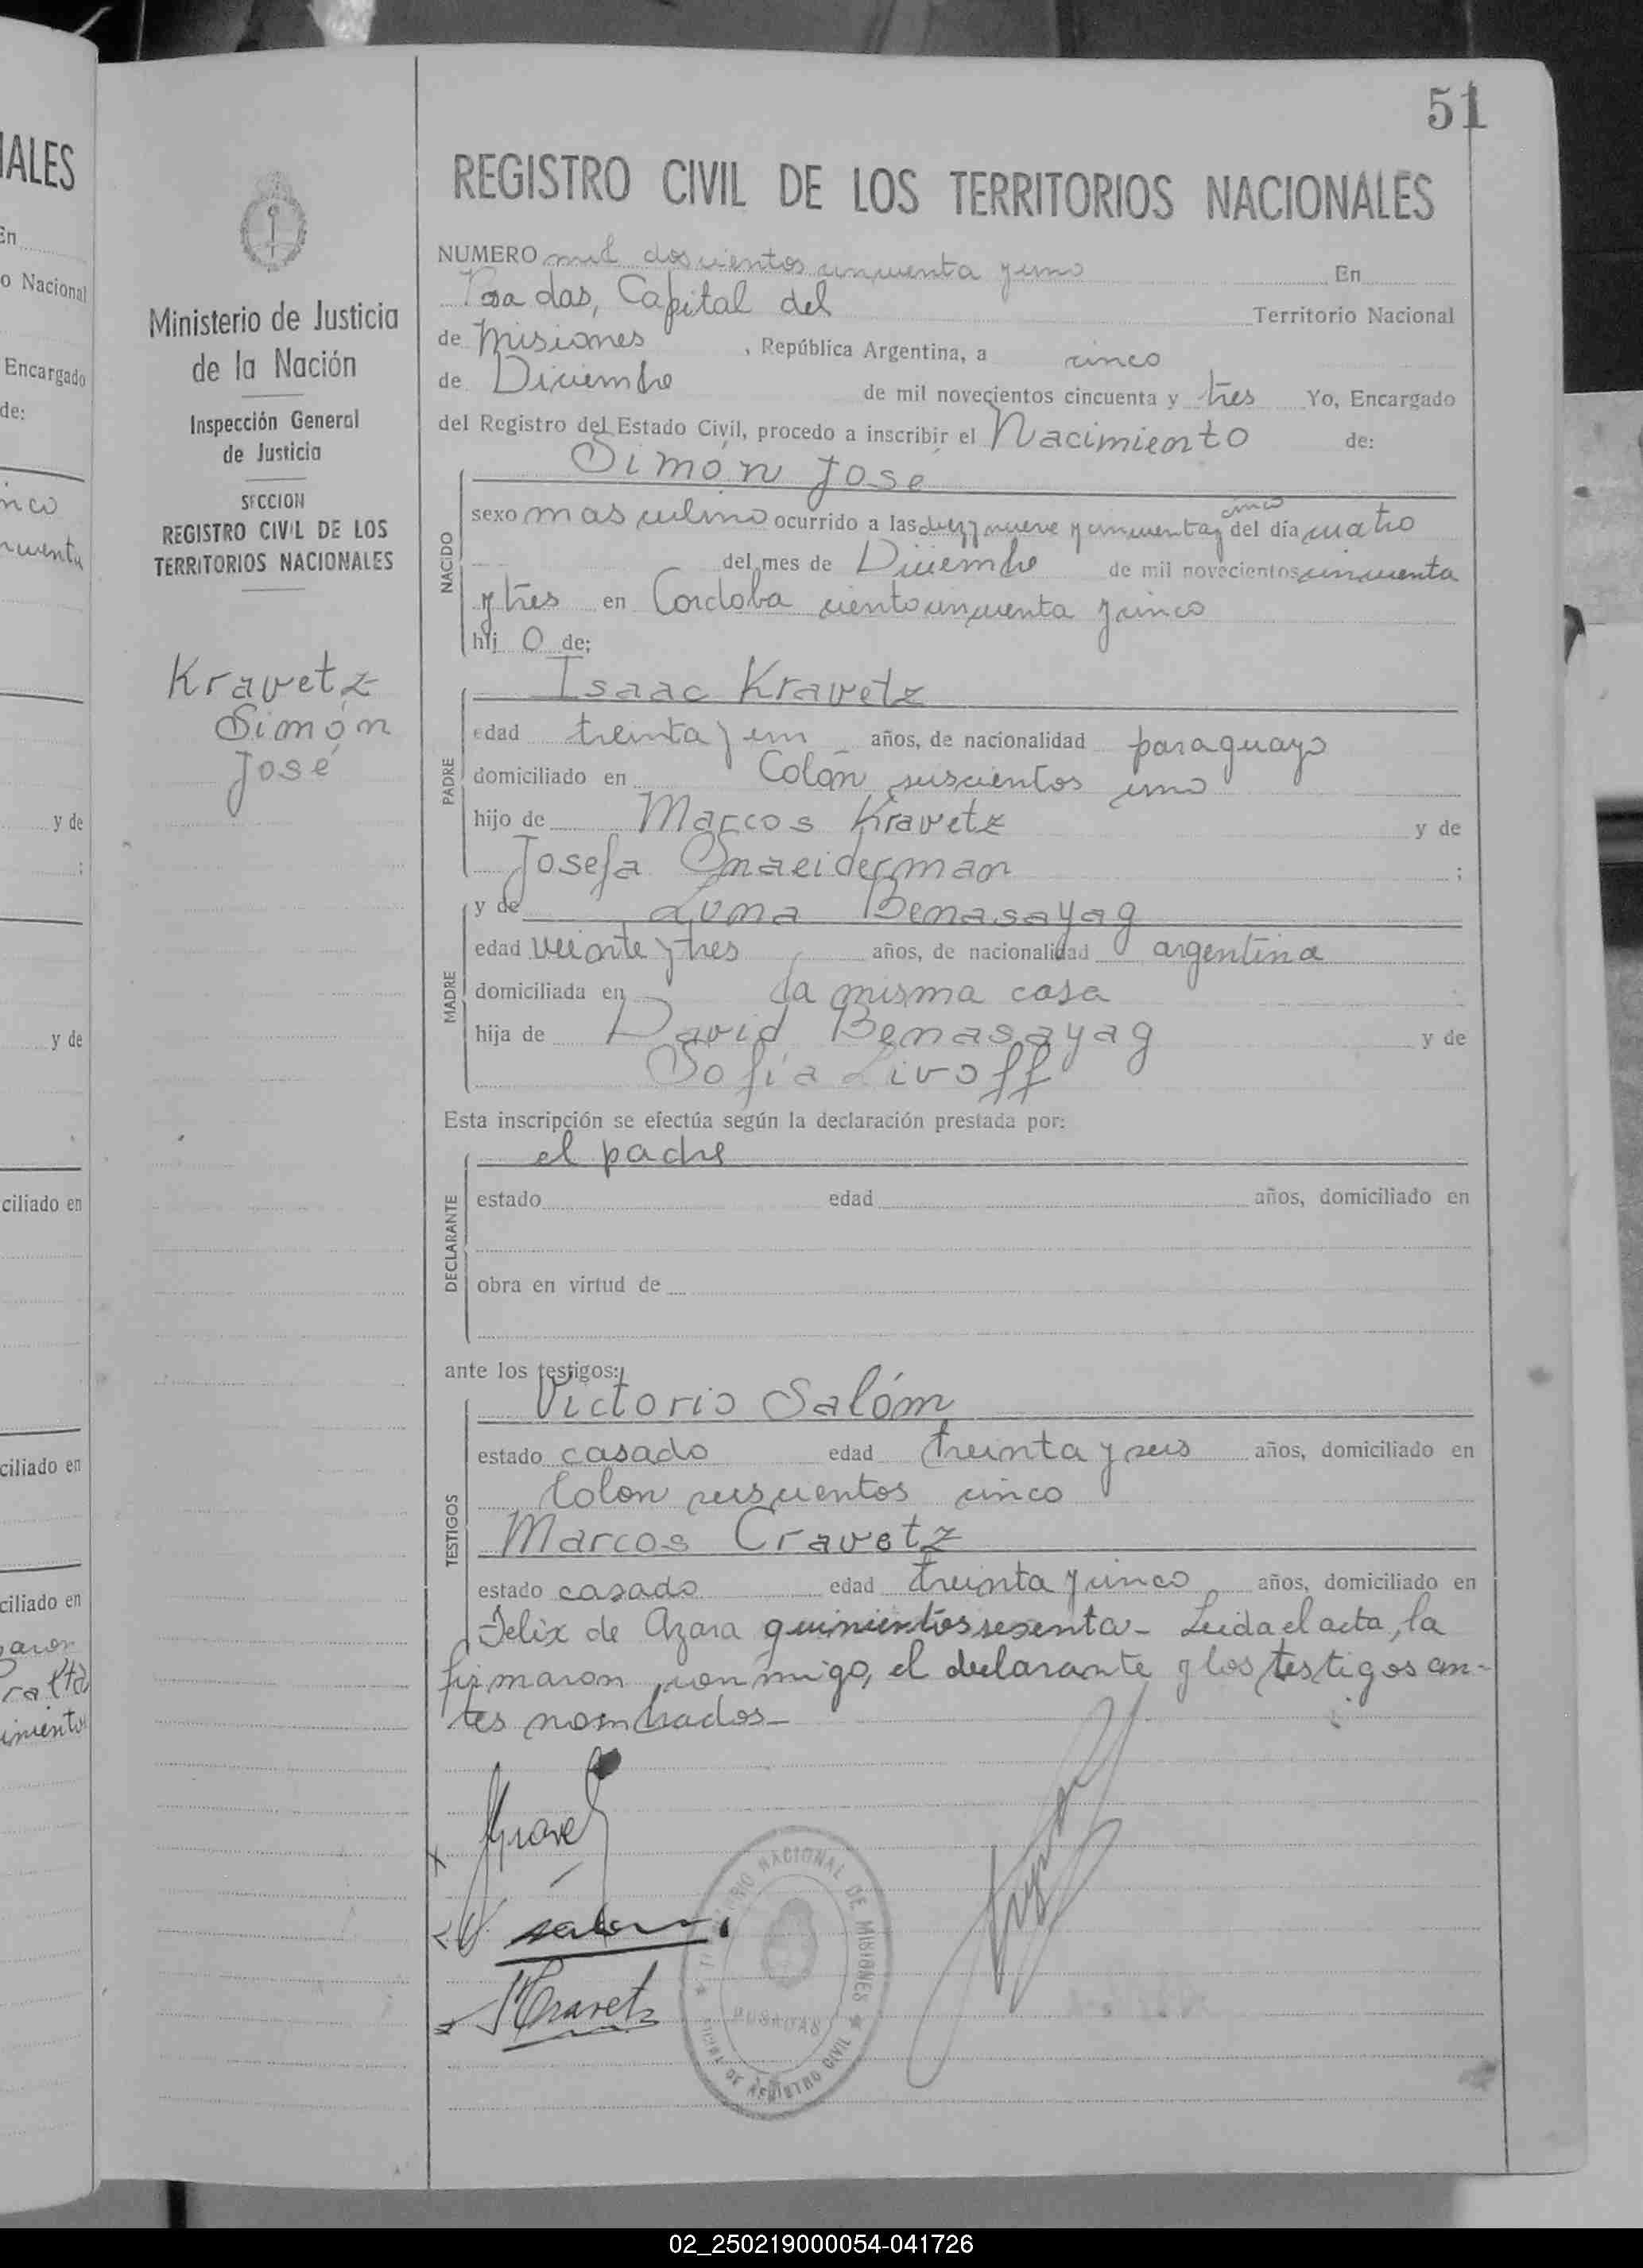 51
REGISTRO CIVIL DE LOS TERRITORIOS NACIONALES
Ministerio de Justicia
de la Nación
Inspección General
de Justicia
SECCION
REGISTRO CIVIL DE LOS
TERRITORIOS NACIONALES
Kravetz
Simón
José
NUMERO mil doscientos cincuenta y uno En
Posadas, Capital del Territorio Nacional
de Misiones, República Argentina, a cinco
de Diciembre de mil novecientos cincuenta y tres Yo, Encargado
del Registro del Estado Civil, procedo a inscribir el Nacimiento de:
Simón José
NACIDO
cinco
sexo masculino ocurrido a las diez y nueve y cincuenta y del día cuatro
del mes de Diciembre de mil novecientos cincuenta
y tres en Cordoba ciento cincuenta y cinco
hij o de;
PADRE
Isaac Kravetz
edad treinta y un años, de nacionalidad paraguayo
domiciliado en Colón seiscientos uno
hijo de Marcos Kravetz y de
Josefa Snaeiderman ;
MADRE
y de Luna Benasayag
edad veinte y tres años, de nacionalidad argentina
domiciliada en la misma casa
hija de David Benasayag y de
Sofía Livoff
Esta inscripción se efectúa según la declaración prestada por:
DECLARANTE
el padre
estado edad años, domiciliado en
obra en virtud de
ante los testigos:
TESTIGOS
Victorio Salóm
estado casado edad treinta y seis años, domiciliado en
Colon seiscientos cinco
Marcos Cravetz
estado casado edad treinta y cinco años, domiciliado en
Felix de Azara quinientos sesenta - Leida el acta, la
firmaron conmigo, el declarante y los testigos an-
tes nombrados -
TERRITORIO NACIONAL DE MISIONES
POSADAS
OFICINA DE REGISTRO CIVIL
IALES
En
o Nacional
Encargado
de:
y de
;
y de
ciliado en
ciliado en
ciliado en
02_250219000054-041726